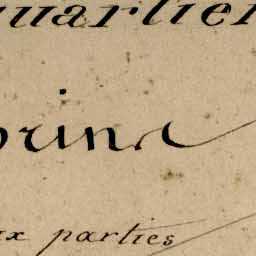 uartier
orina
ux parties